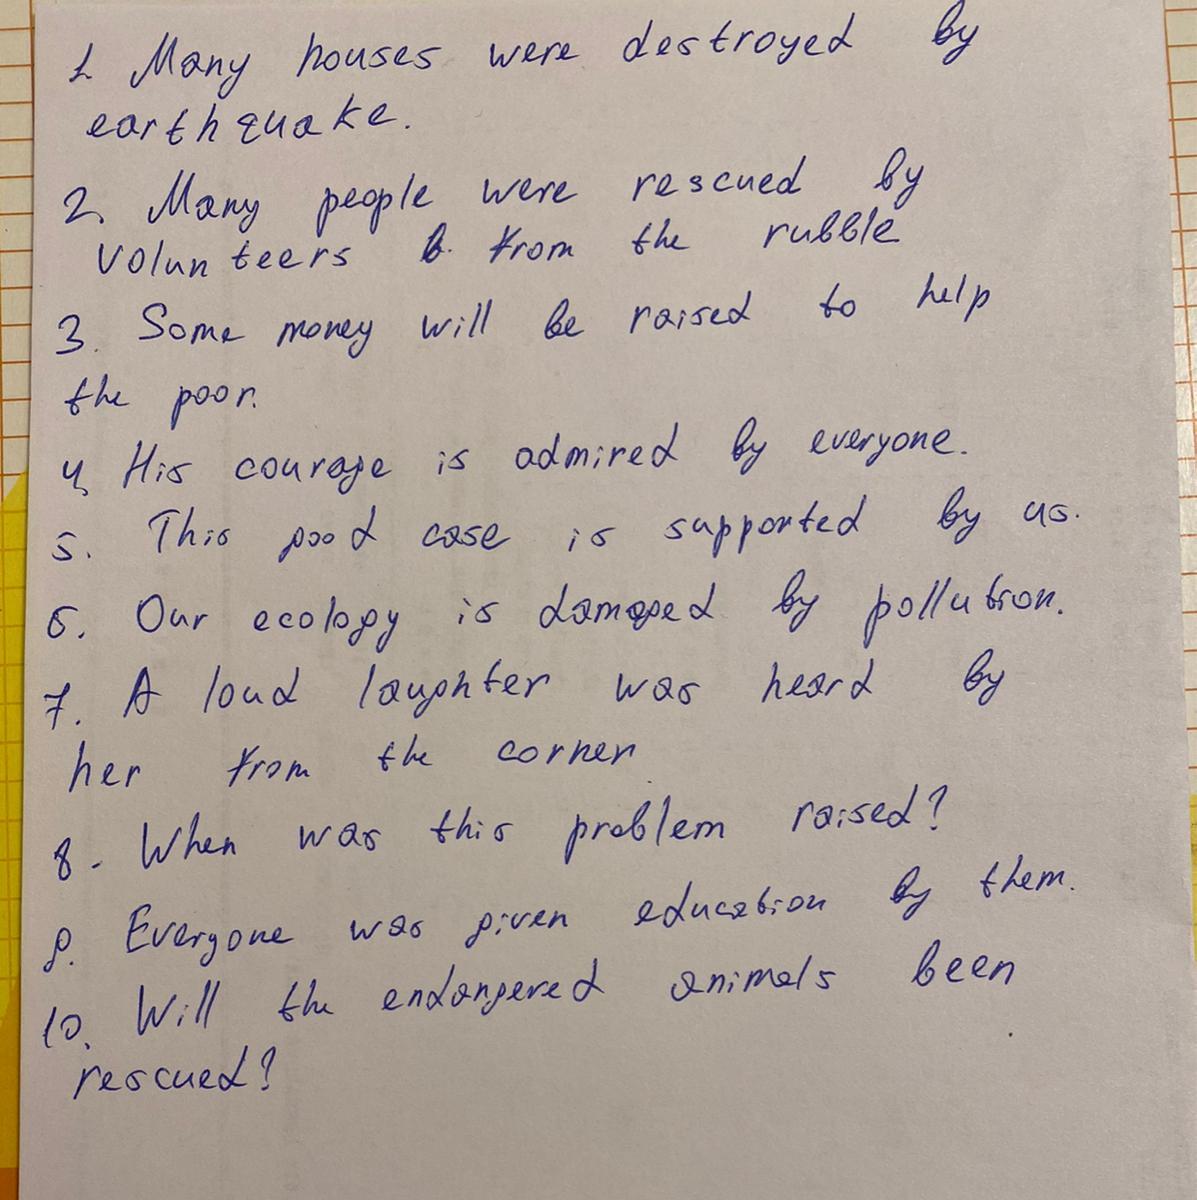 1. Many houses were destroyed by
earthquake.
2. Many people were rescued by
volunteers from the rubble
3. Some money will be raised to help
the poor.
4. His courage is admired by everyone.
5. This good case is supported by us.
6. Our ecology is damaged by pollution.
7. A loud laughter was heard by
her from the corner
8. When was this problem raised?
9. Everyone was given education by them.
10. Will the endangered animals been
rescued?